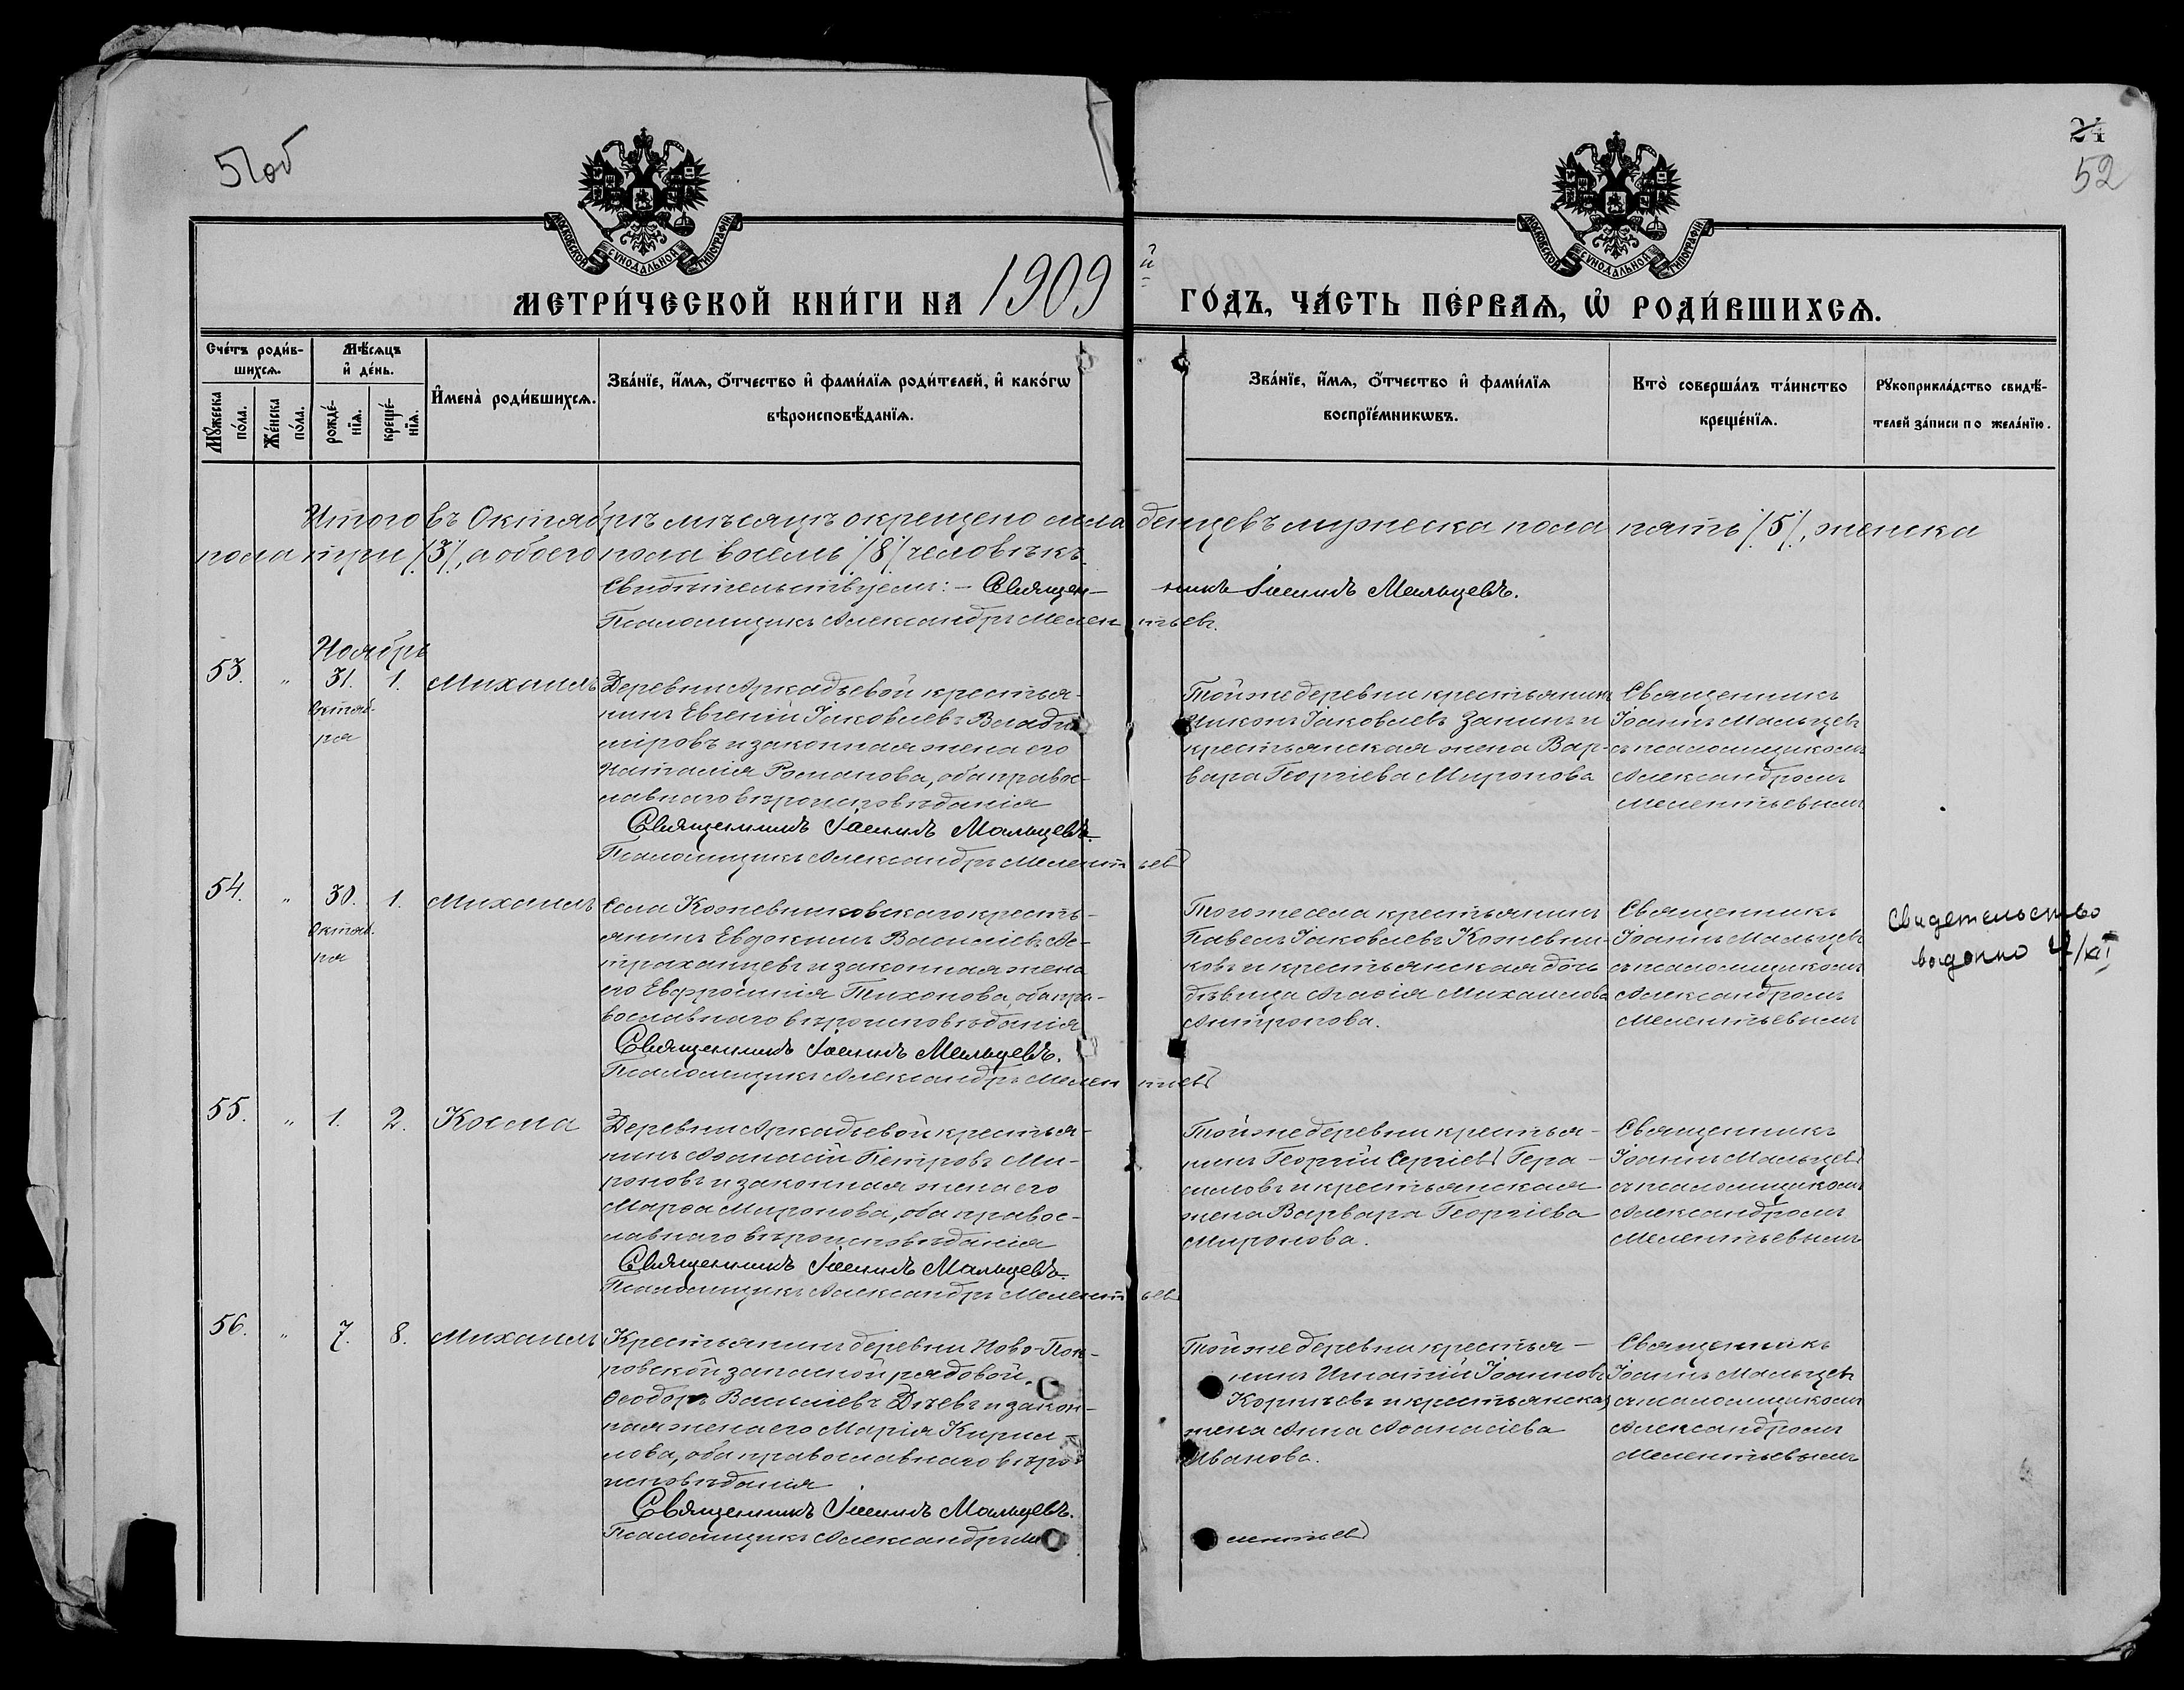 51об
24
52
МОСКОВСКОЙ СѴНОДАЛЬНОЙ ТИПОГРАФІИ
МОСКОВСКОЙ СѴНОДАЛЬНОЙ ТИПОГРАФІИ
МЕТРИ́ЧЕСКОЙ КНИ́ГИ НА 1909й ГО́ДЪ, ЧА́СТЬ ПЕ́РВАѦ, Ѡ҆ РОДИ́ВШИХСѦ.
Сче́тъ роди́в-
шихсѧ.
Мѣ́сѧцъ
и҆ де́нь.
Мꙋ́жеска
по́ла.
Же́нска
по́ла.
рожде́-
нїѧ.
креще́-
нїѧ.
И҆мена̀ роди́вшихсѧ.
Зва́нїе, и҆́мѧ, ѻ҆́тчество и҆ фами́лїѧ роди́телей, и҆ како́гѡ
вѣроисповѣ́данїѧ.
Зва́нїе, и҆́мѧ, ѻ҆́тчество и҆ фами́лїѧ
воспрїе́мникѡвъ.
Кто̀ соверша́лъ та́инство
креще́нїѧ.
Рꙋкоприкла́дство свидѣ́-
телей за́писи по жела́нїю.
Итого въ Октябрѣ мѣсяцѣ окрещено младенцевъ мужеска пола пять /5/, женска
пола три /3/, а обоего пола восемь /8/ человѣкъ.
Свидѣтельствуемъ: - Священникъ Іоаннъ Мальцевъ.
Псаломщикъ Александръ Мелентьевъ.
Ноябрь
53. " 31. 1. Михаилъ
Октяб-
ря
Деревни Аркадьевой крестья-
нинъ Евгеній Іаковлевъ Влади-
міровъ и законная жена его
Наталія Романова, оба правос-
лавнаго вѣроисповѣданія
Священникъ Іоаннъ Мальцевъ.
Псаломщикъ Александръ Мелентьевъ
Той же деревни крестьянинъ
Никонъ Іаковлевъ Занинъ и
крестьянская жена Вар-
вара Георгіева Миронова
Священникъ
Іоаннъ Мальцевъ
съ псаломщикомъ
Александромъ
Мелентьевымъ
54. " 30. 1. Михаилъ
Октяб-
ря
Села Кожевниковскаго кресть-
янинъ Евдокимъ Василіевъ Ас-
траханцевъ и законная жена
его Евфросинія Тихонова, оба пра-
вославнаго вѣроисповѣданія
Священникъ Іоаннъ Мальцевъ.
Псаломщикъ Александръ Мелентьевъ
Того же села крестьянинъ
Павелъ Іаковлевъ Кожевни-
ковъ и крестьянская дочь
дѣвица Агафія Михаилова
Антропова.
Священникъ
Іоаннъ Мальцевъ
съ псаломщикомъ
Александромъ
Мелентьевымъ
Свидетельство
выдонно /XI
55. " 1. 2. Косма
Деревни Аркадьевой крестья-
нинъ Аѳанасій Петровъ Ми-
роновъ и законная жена его
Марѳа Миронова, оба правос-
лавнаго вѣроисповѣданія
Священникъ Іоаннъ Мальцевъ.
Псаломщикъ Александръ Мелентьевъ
Той же деревни крестья-
нинъ Георгій Сергіевъ Гера-
симовъ и крестьянская
жена Варвара Георгіева
Миронова.
Священникъ
Іоаннъ Мальцевъ
съ псаломщикомъ
Александромъ
Мелентьевымъ
56. " 7. 8. Михаилъ
Крестьянинъ деревни Ново-Пок-
ровской, запасной рядовой,
Ѳеодоръ Василіевъ и закон-
ная жена его Марія Кирил-
лова, оба православнаго вѣро-
исповѣданія
Священникъ Іоаннъ Мальцевъ.
Псаломщикъ Александръ Мелентьевъ
Той же деревни крестья-
нинъ Игнатій Іоанновъ
и крестьянская
жена Анна Аѳанасіева
Иванова.
Священникъ
Іоаннъ Мальцевъ
съ псаломщикомъ
Александромъ
Мелентьевымъ